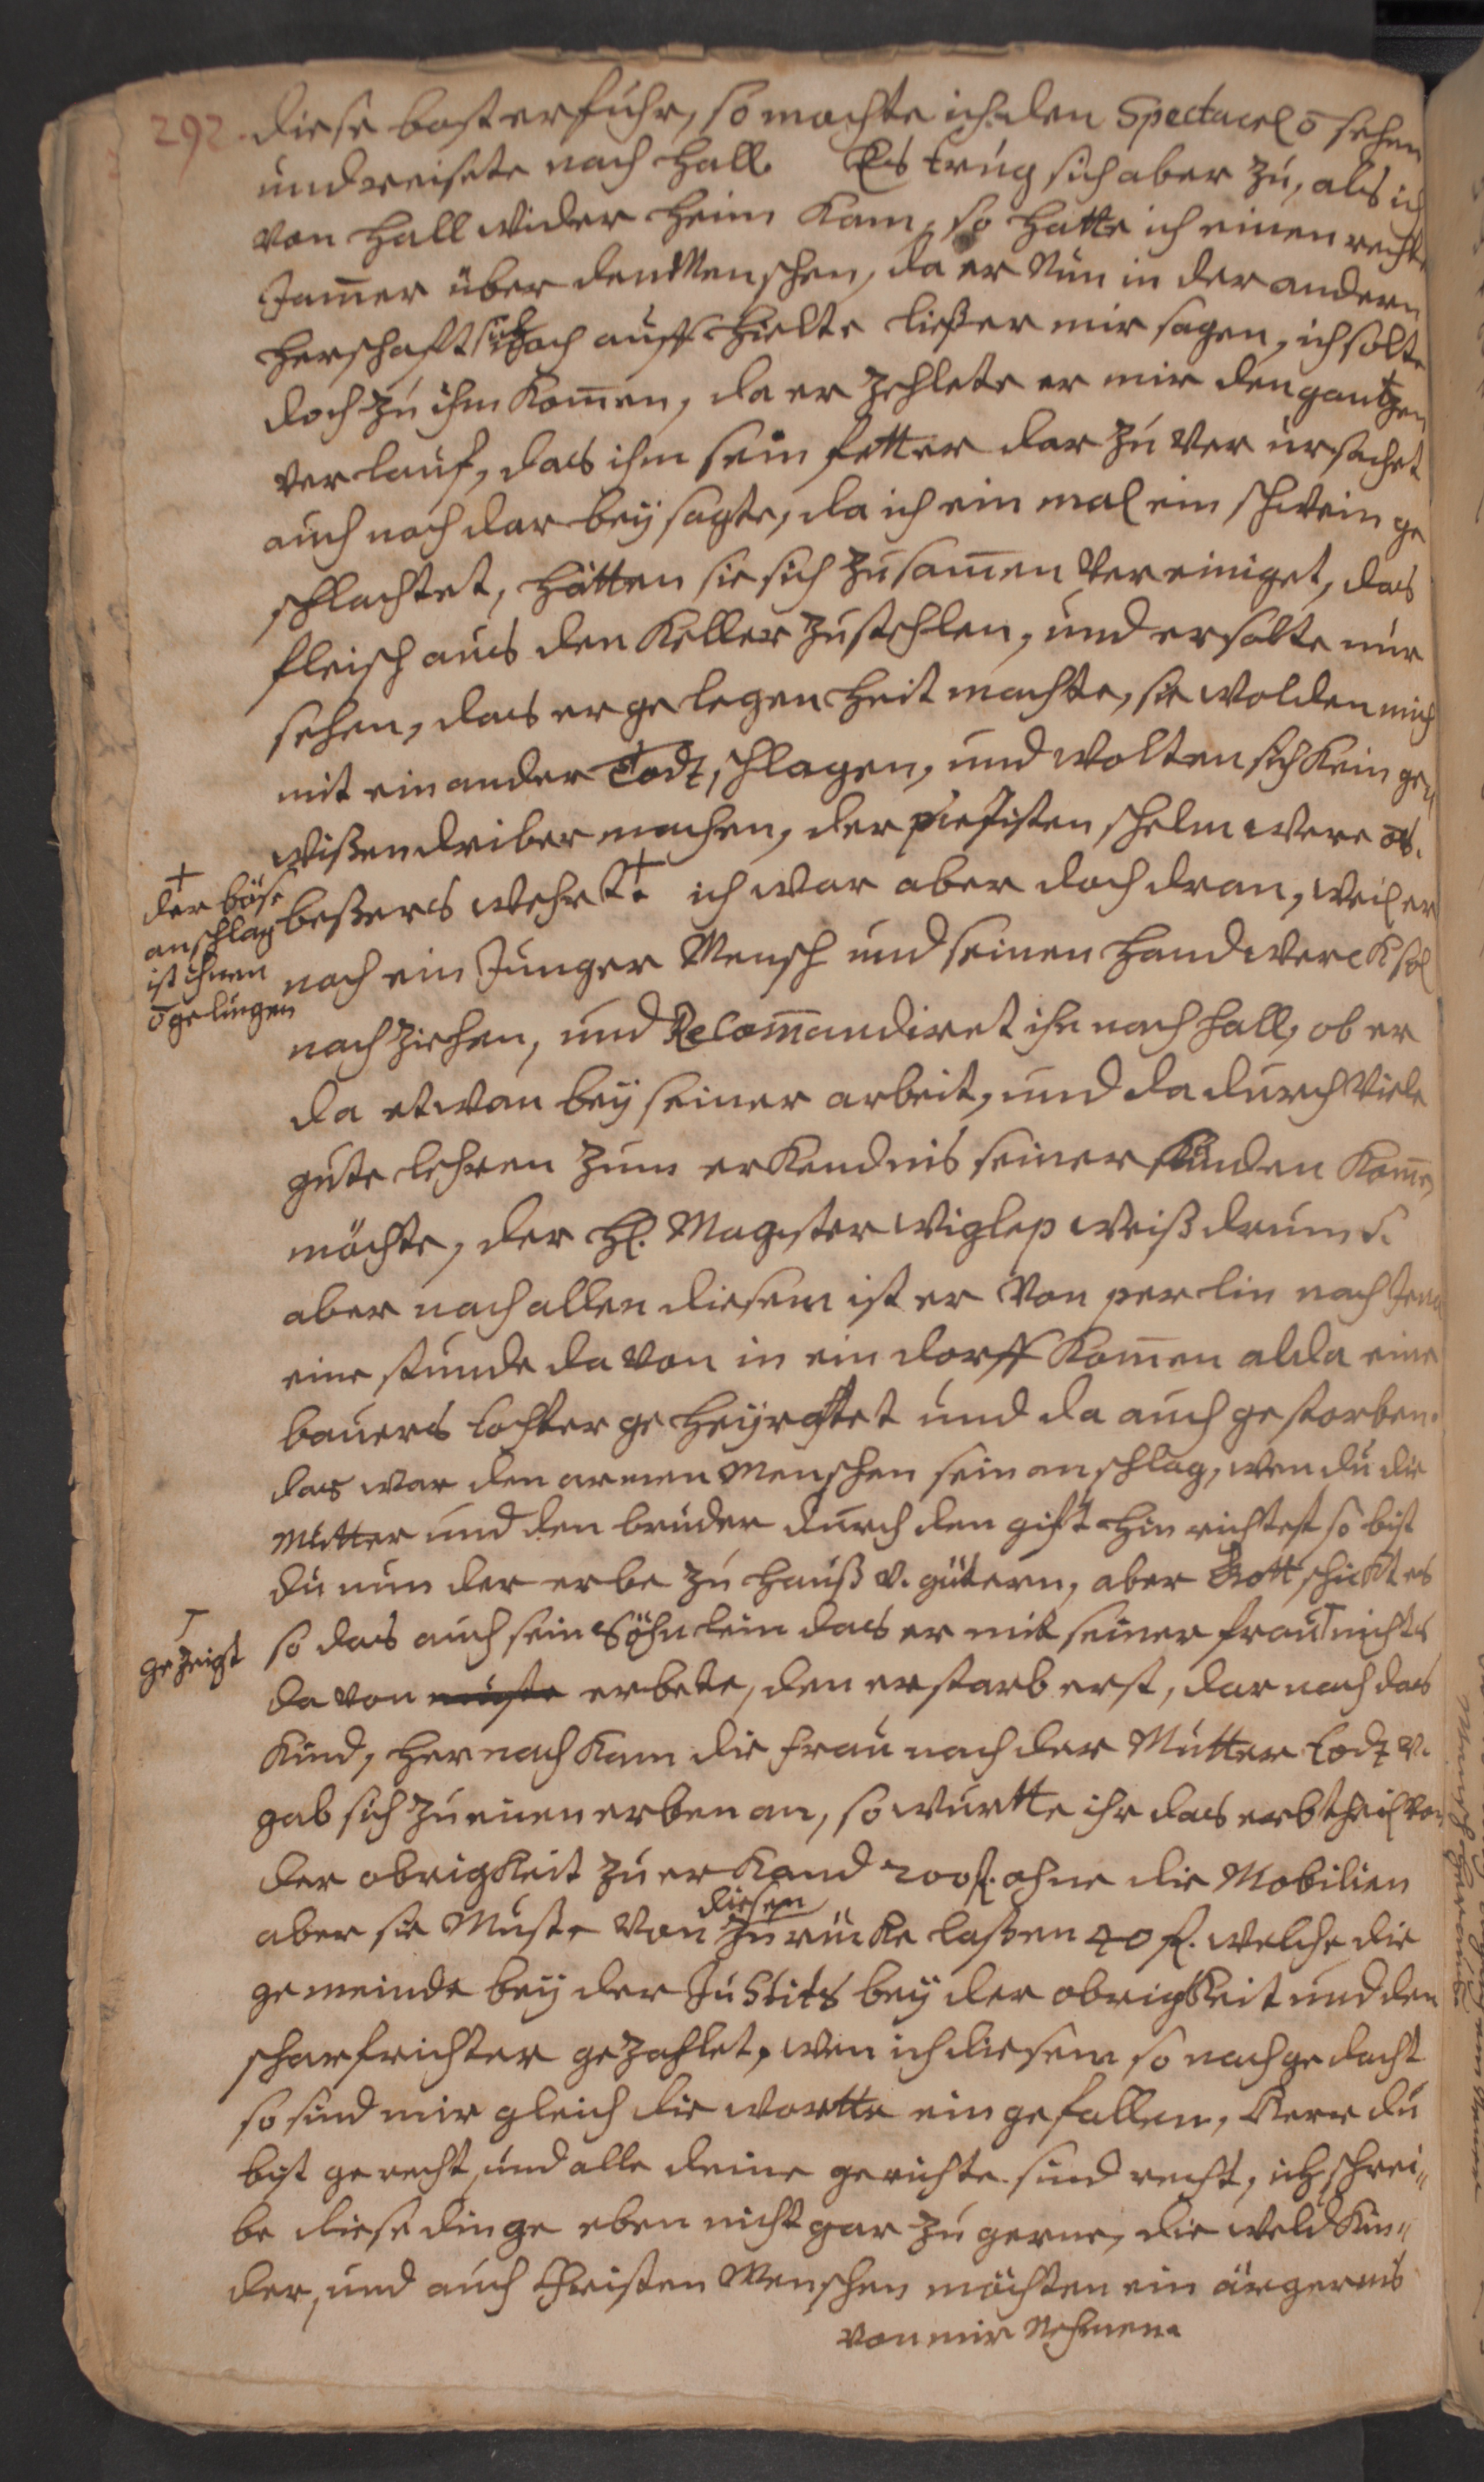 292. diese bost erfuhr, so mochte ich den Spectacel ō sehen
und reisete nach Hall. Es trug sich aber zu, als ich
von Hall wider heim kam, so hatte ich einen rechte
Jam̄er über den Menschen, da er Nun in der andern
Herschafft sich noch auff hielte ließ er mir sagen, ich solte
doch zu ihm kom̄en, da er zehlete er mir den gantzen
verlauf, das ihm sein fetter dar zu ver ursachet
auch noch dar bey sagte, da ich ein mal ein schwein ge
schlachtet, hätten sie sich zusam̄en vereiniget, das
fleisch aus den Keller zu stehlen, und er solte nur
sehen, das er gelegen heit machte, sie wolden mich
mit ein ander Todt schlagen, und wolten sich kein ge„
wißen driber machen, der piestisten schelm were ōs.
beßers wehrtt † ich war aber doch dran, weil er
† der böse
anschlag
ist ihnen
ō gelungen
noch ein Junger Mensch und seinen Handwerck sol
nach ziehen, und Recom̄andiret ihn nach Hall, ob er
da etwan bey seiner arbeit, und da durch viele
gute lehren zum erkendnis seiner sünden kom̄en
möchte, der H. Magister Wiglep weiß drum s.
aber nach allen diesem ist er von perlin nach Jena
eine stunde da von in ein dorff kom̄en alda eine
bauers tochter geheyrathet und da auch gestorben.
das war den armen Menschen sein anschlag, wen du die
Mutter und den bruder durch den gifft hin richtest so bist
du nun der erbe zu Hauß v. gütern, aber Gott schickt es
so das auch sein Söhnlein das er mit seiner frau ⊤ nichts
⊤
gezeigt
da von muste erbete, den er starb erst, dar nach das
Kind, her nach kam die frau nach der Mutter todt v.
gab sich zu einen erben an, so wurtte ihr das erbtheil von
der obrigkeit zu erkand 200 f. ohne die Mobilien
aber sie Muste von diesen zurücke laßen 40 f. welche die
gemeinde bey der Justits bey der obrigkeit und den
scharfrichter gezahlet, wen ich diesem so nachgedacht
so sind mir gleich die wortte ein gefallen, Herr du
bist gerecht, und alle deine gerichte sind recht, ich schrei„
be diese dinge eben nicht gar zu gerne, die weld Kin„
der, und auch Christen Menschen möchten ein ärgernis
von mir Nehmen.